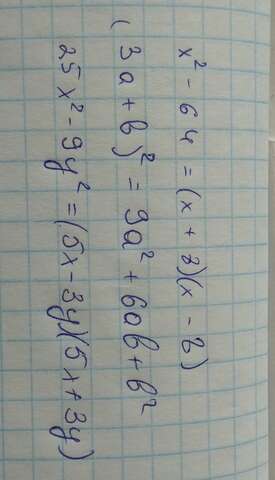 x² - 64 = (x + 8)(x - 8)
(3a + b)² = 9a² + 6ab + b²
25x² - 9y² = (5x - 3y)(5x + 3y)